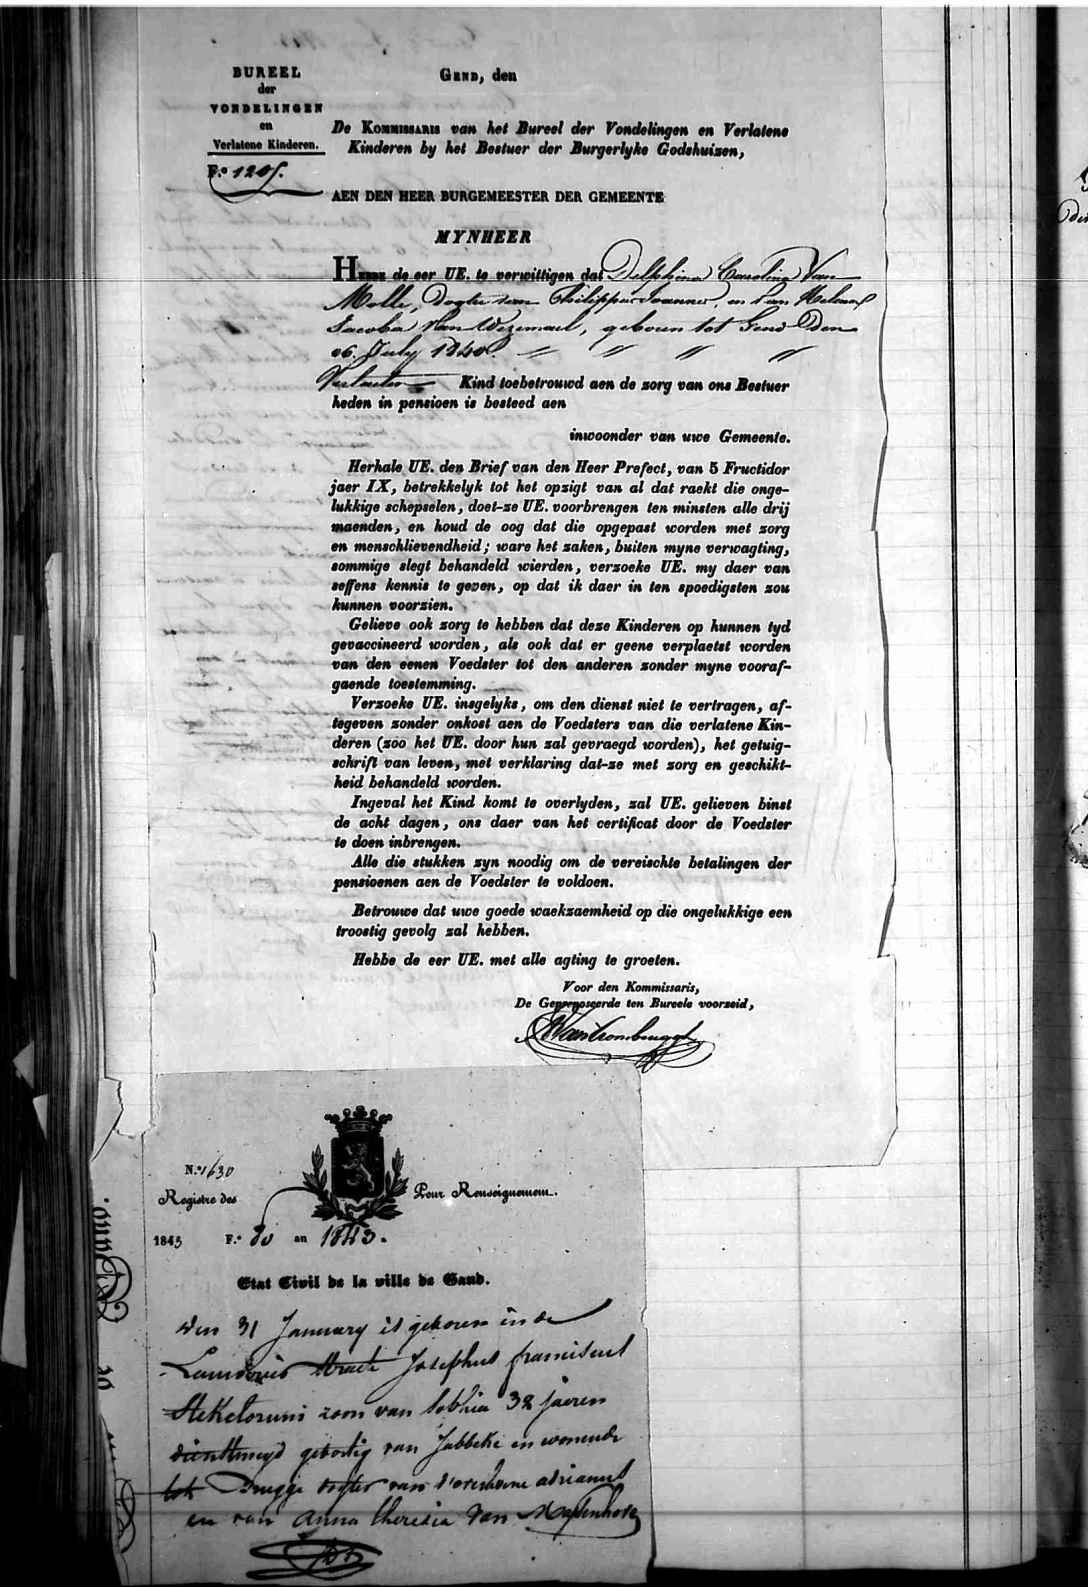 BUREEL
der
VONDELINGEN
en
Verlatene Kinderen.
F.º 1205.
GEND, den
De KOMMISSARIS van het Bureel der Vondelingen en Verlatene
Kinderen by het Bestuer der Burgerlyke Godshuizen,
AEN DEN HEER BURGEMEESTER DER GEMEENTE
MYNHEER
HEBBE de eer UE. te verwittigen dat Delphina Carolina Van
Molle, Dogter van Philippus Joannes, en van
Jacoba Van Wezemael, geboren tot Gend Den
26. July 1840.
Verlaeten Kind toebetrouwd aen de zorg van ons Bestuer
heden in pensioen is besteed aen
inwoonder van uwe Gemeente.
Herhale UE. den Brief van den Heer Prefect, van 5 Fructidor
jaer IX, betrekkelyk tot het opzigt van al dat raekt die onge-
lukkige schepselen, doet-ze UE. voorbrengen ten minsten alle drij
maenden, en houd de oog dat die opgepast worden met zorg
en menschlievendheid; ware het zaken, buiten myne verwagting,
sommige slegt behandeld wierden, verzoeke UE. my daer van
seffens kennis te geven, op dat ik daer in ten spoedigsten zou
kunnen voorzien.
Gelieve ook zorg te hebben dat deze Kinderen op hunnen tyd
gevaccineerd worden, als ook dat er geene verplaetst worden
van den eenen Voedster tot den anderen zonder myne vooraf-
gaende toestemming.
Verzoeke UE. insgelyks, om den dienst niet te vertragen, af-
tegeven zonder onkost aen de Voedsters van die verlatene Kin-
deren (zoo het UE. door hun zal gevraegd worden), het getuig-
schrift van leven, met verklaring dat-ze met zorg en geschikt-
heid behandeld worden.
Ingeval het Kind komt te overlyden, zal UE. gelieven binst
de acht dagen, ons daer van het certificat door de Voedster
te doen inbrengen.
Alle die stukken zyn noodig om de vereischte betalingen der
pensioenen aen de Voedster te voldoen.
Betrouwe dat uwe goede waekzaemheid op die ongelukkige een
troostig gevolg zal hebben.
Hebbe de eer UE. met alle agting te groeten.
Voor den Kommissaris,
De GeprepOseerde ten Bureele voorzeid,
N.º 1630
Registre des
Pour Renseignement.
1843 F.º 80 an 1843.
Etat Civil de la ville de Gand.
den 31 January is geboren in de
straete Josephus franciscus
Steketorum zoon van Sophia 32 jaeren
dienstmeyd geboortig van Jabbeke en wonende
tot Brugge dogter van d'overledene adrianus
en van Anna theresia Van